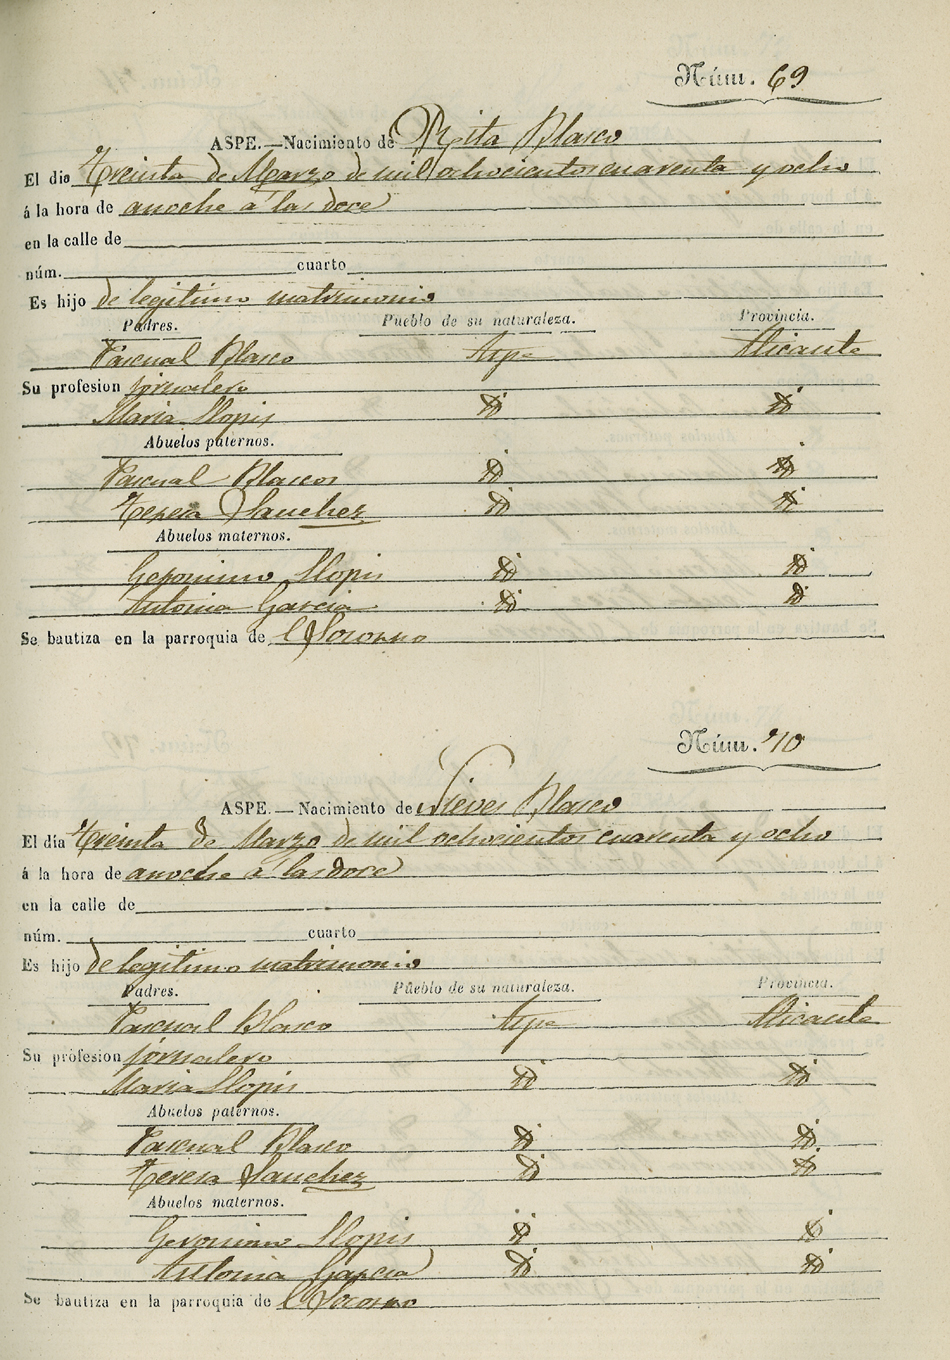 Núm. 69
ASPE.—Nacimiento de Rita Blasco
El dia Treinta de Marzo de mil ochocientos cuarenta y ocho
á la hora de anoche á las doce
en la calle de
núm. cuarto
Es hijo de legitimo matrimonio
Padres. Pueblo de su naturaleza. Provincia.
Pascual Blasco Aspe Alicante
Su profesion jornalero
Maria Llopis id id
Abuelos paternos.
Pascual Blasco id id
Teresa Sanchez id id
Abuelos maternos.
Geronimo Llopis id id
Antonia Garcia id id
Se bautiza en la parroquia de l Socorro
Núm. 70
ASPE.—Nacimiento de Nieves Blasco
El dia Treinta de Marzo de mil ochocientos cuarenta y ocho
á la hora de anoche á las doce
en la calle de
núm. cuarto
Es hijo de legitimo matrimonio
Padres. Pueblo de su naturaleza. Provincia.
Pascual Blasco Aspe Alicante
Su profesion jornalero
Maria Llopis id id
Abuelos paternos.
Pascual Blasco id id
Teresa Sanchez id id
Abuelos maternos.
Geronimo Llopis id id
Antonia Garcia id id
Se bautiza en la parroquia de l Socorro